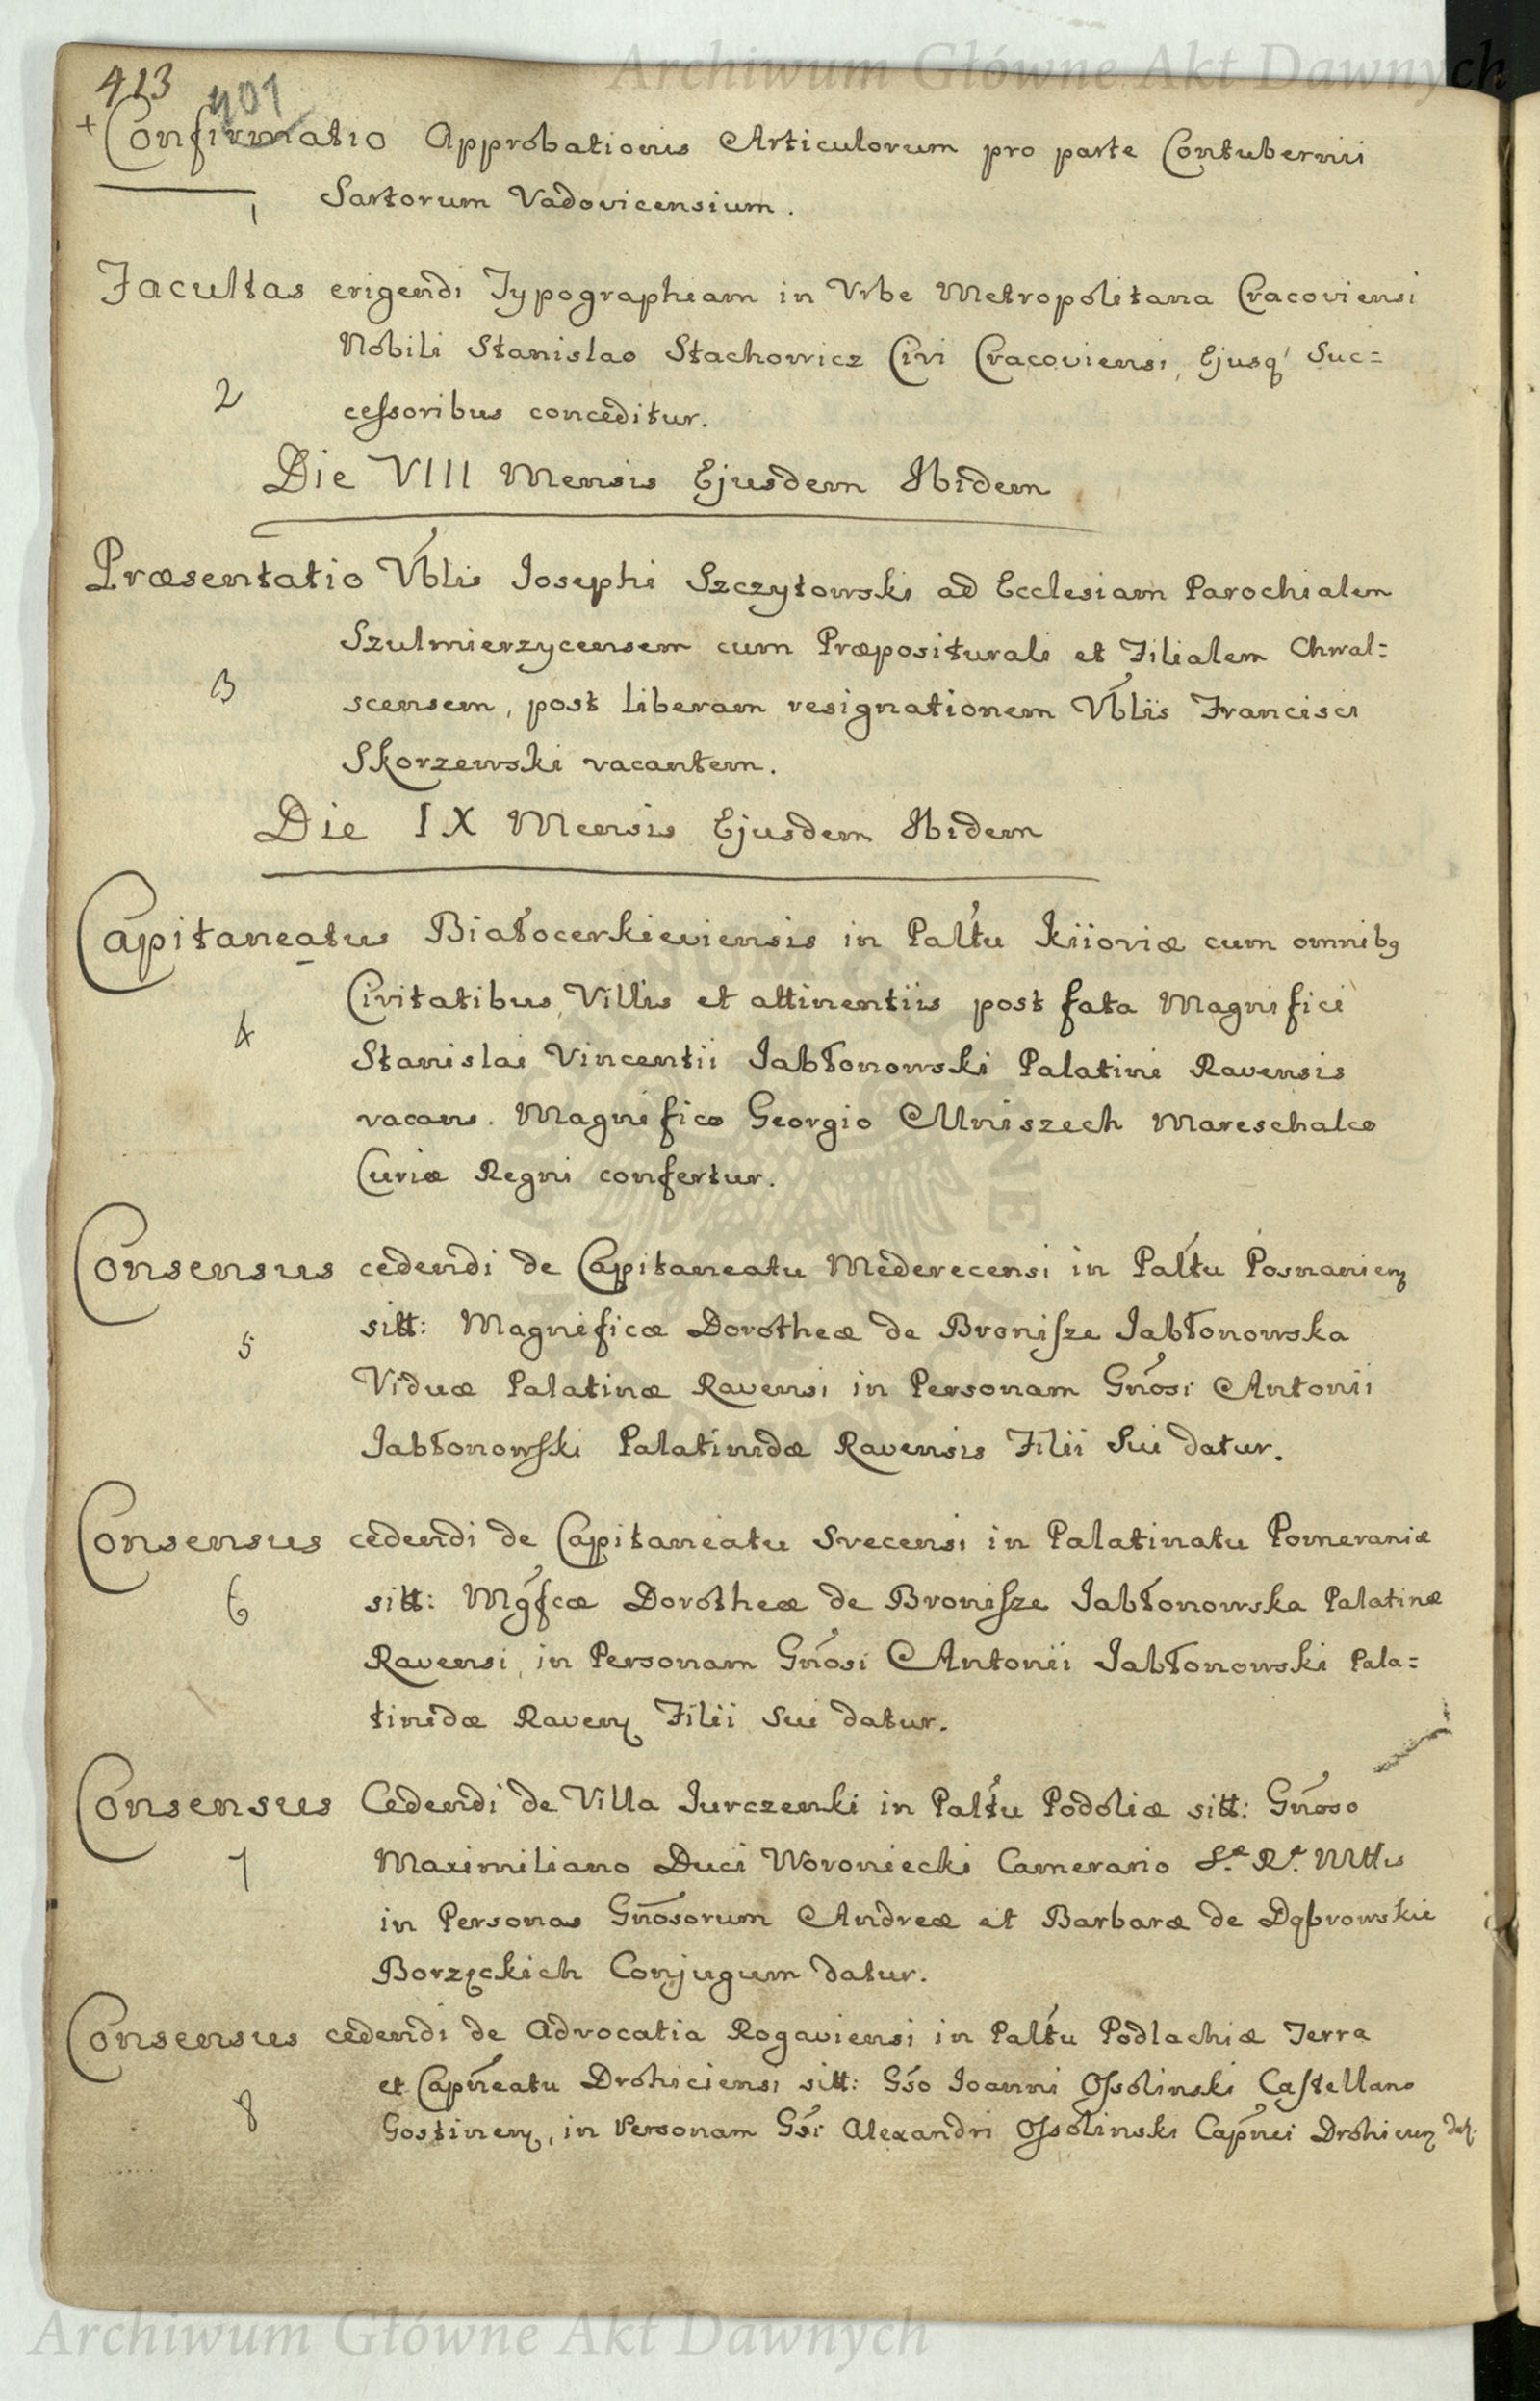 Archiwum Główne Akt Dawnych
413
401
+ Confirmatio Approbationis Articulorum pro parte Contubernii
1 Sartorum Vadovicensium.
Facultas erigendi Typographiam in Vrbe Metropolitana Cracoviensi
Nobili Stanislao Stachowicz Civi Cracoviensi, Ejusq' Suc=
2 cessoribus conceditur.
Die VIII Mensis Ejusdem Ibidem
Præsentatio Vblis Josephi Szczytowski ad Ecclesiam Parochialem
Szulmierzycensem cum Præpositurali et Filialem Chwal=
3 scensem, post liberam resignationem Vblis Francisci
Skorzewski vacantem.
Die IX Mensis Ejusdem Ibidem
Capitaneatus Białocerkieviensis in Paltu Kiioviæ cum omnibq
Civitatibus, Villis et attinentiis post fata Magnifici
4 Stanislai Vincentii Jabłonowski Palatini Ravensis
vacans. Magnifico Georgio Mniszech Mareschalco
Curiæ Regni confertur.
Consensus cedendi de Capitaneatu Mederecensi in Paltu Posnanien
5 sitt: Magnificæ Dorotheæ de Bronisze Jabłonowska
Viduæ Palatinæ Ravensi in Personam Gnosi Antonii
Jabłonowski Palatinidæ Ravensis Filii Sui datur.
Consensus cedendi de Capitaneatu Svecensi in Palatinatu Pomeraniæ
6 sitt: Mgfcæ Dorotheæ de Bronisze Jabłonowska Palatinæ
Ravensi, in Personam Gnosi Antonii Jabłonowski Pala=
tinidæ Raven Filii Sui datur.
Consensus Cedendi de Villa Jurczenki in Paltu Podoliæ sitt: Gnoso
7 Maximiliano Duci Woroniecki Camerario S.æ R.æ Mttis
in Personas Gnosorum Andreæ et Barbaræ de Dąbrowskie
Borzęckich Conjugum datur.
Consensus cedendi de Advocatia Rogaviensi in Paltu Podlachiæ Terra
et Capneatu Drohiciensi sitt: Gso Joanni Ossolinski Castellano
8 Gostinen, in Personam Gsi Alexandri Ossolinski Capnei Drohicien dat.
Archiwum Główne Akt Dawnych